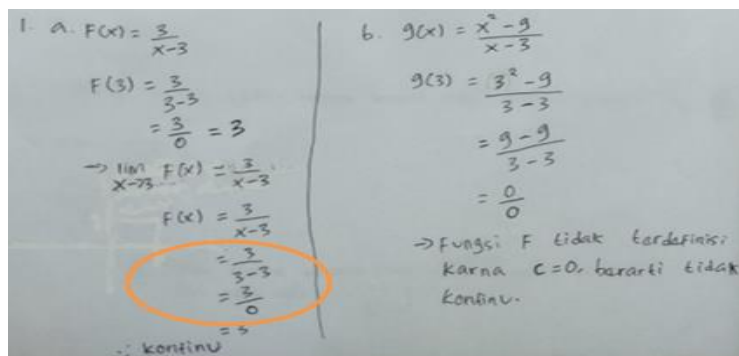 1. a. F(x) = 3/x-3
F(3) = 3/3-3
= 3/0 = 3
→ lim x→3 F(x) = 3/x-3
F(x) = 3/x-3
= 3/3-3
= 3/0
= 3
∴ kontinu
b. g(x) = x²-9/x-3
g(3) = 3²-9/3-3
= 9-9/3-3
= 0/0
→ Fungsi F tidak tardefinisi
karna c=0, bararti tidak
kontinu.